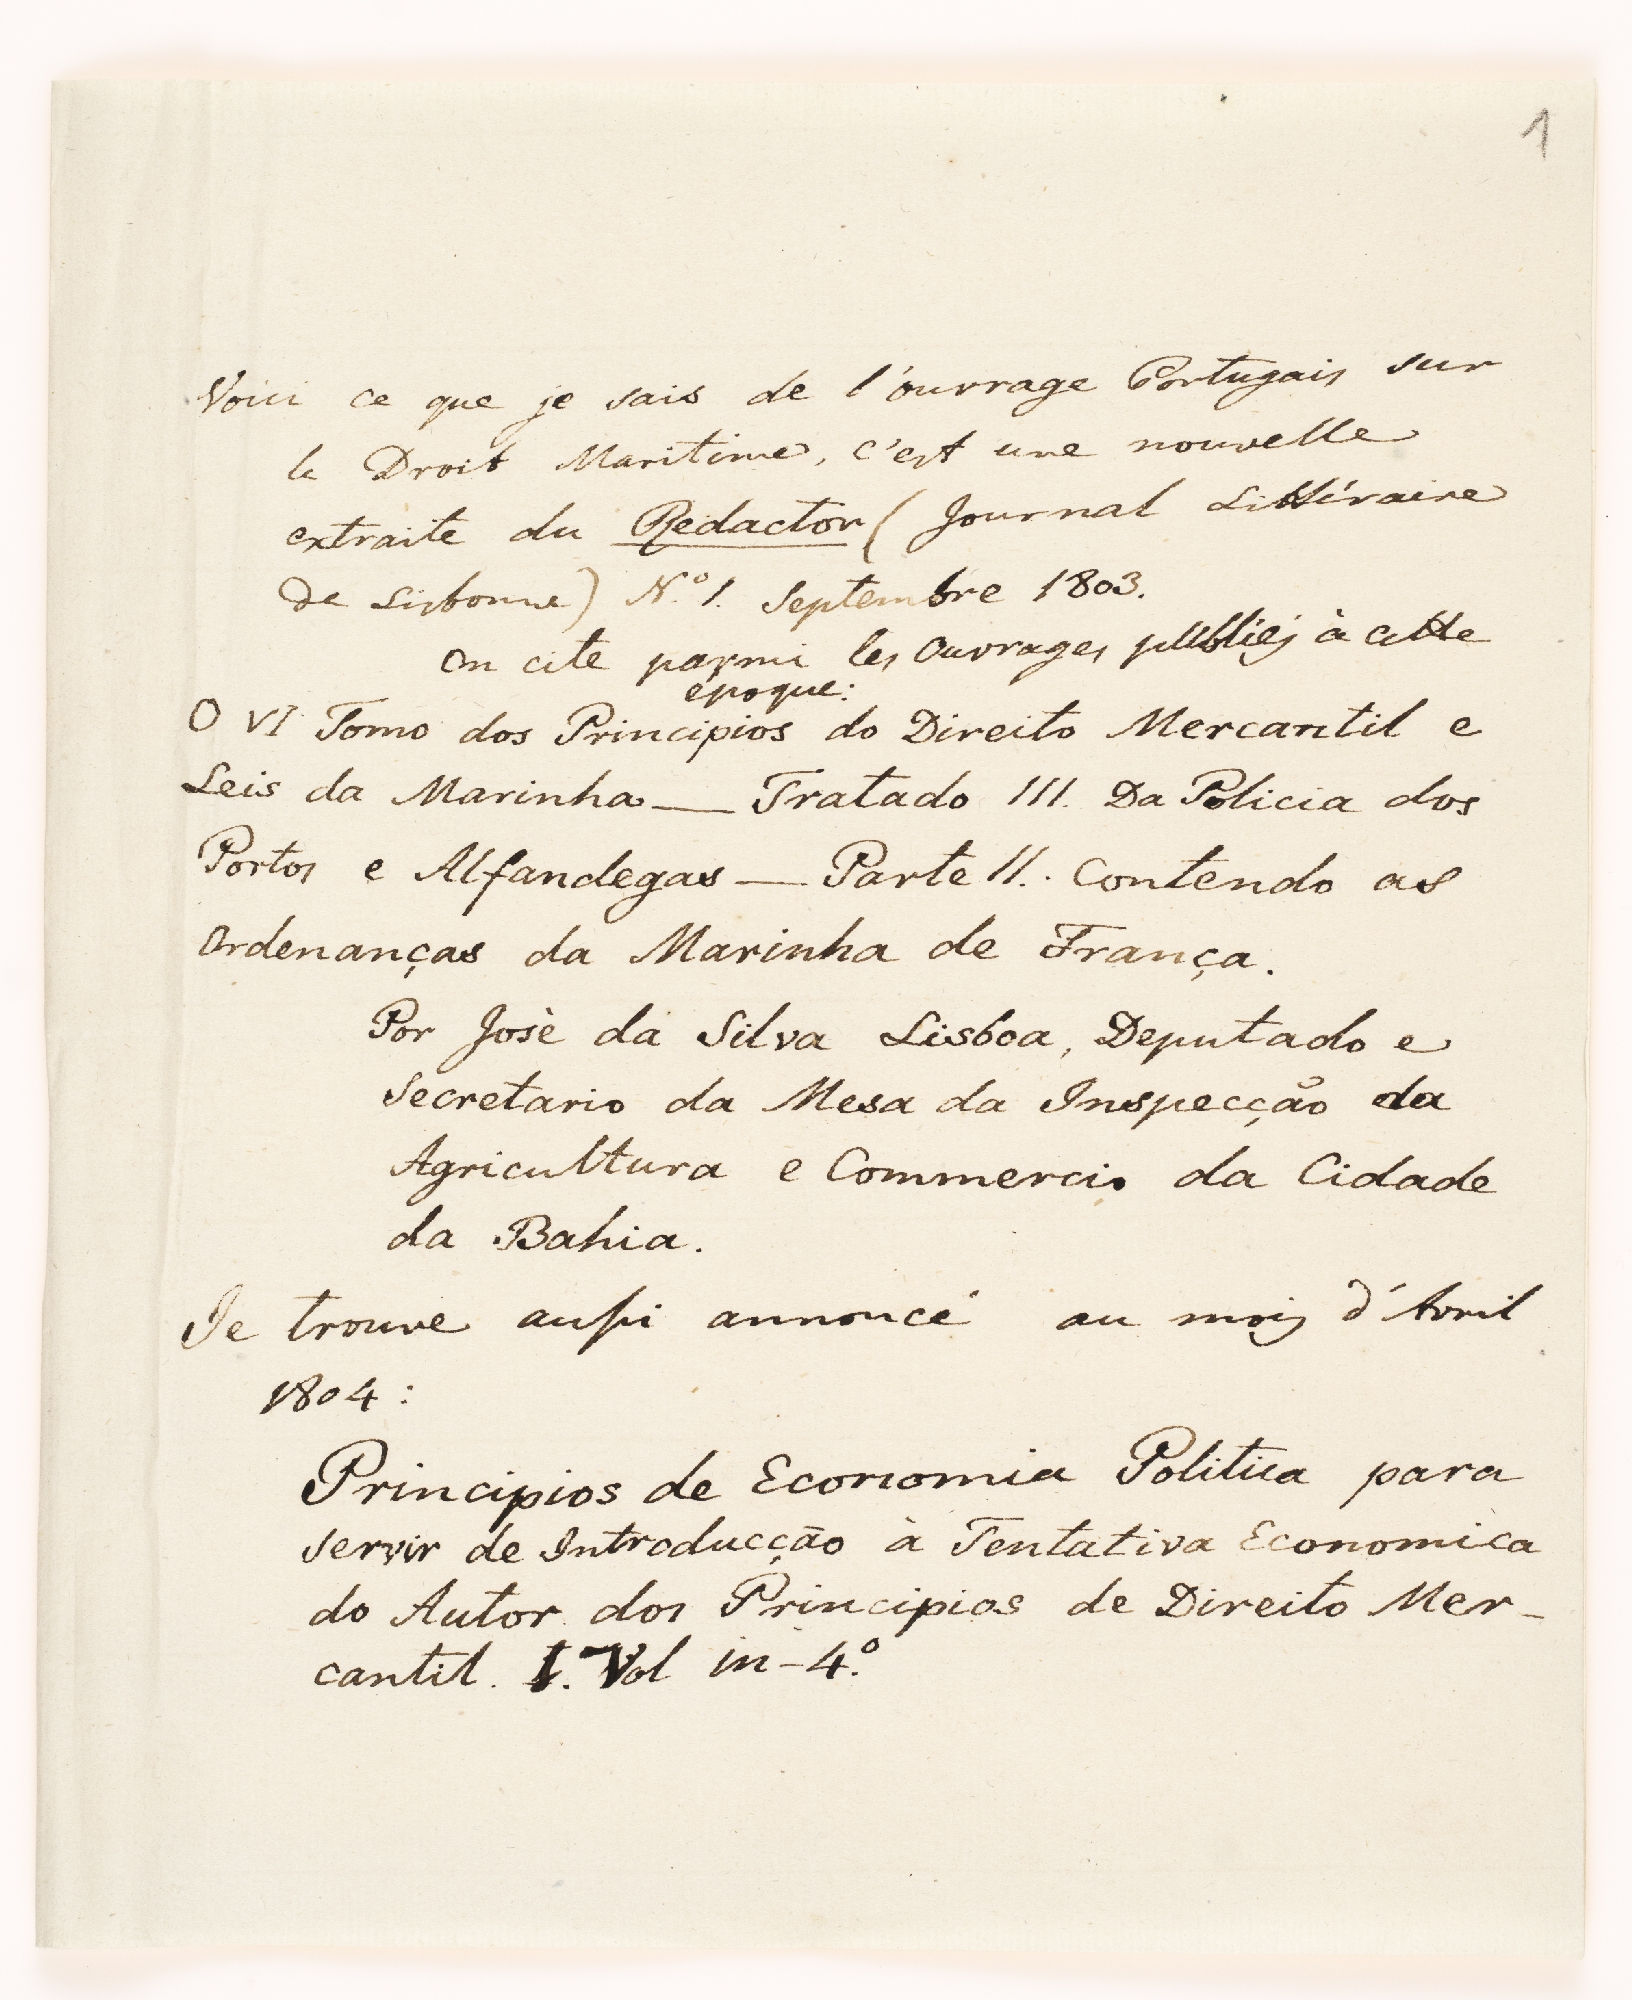 1
Voici ce que je sais de l'ouvrage Portugais sur
le Droit Maritime, c'est une nouvelle
extraite du Redactor (Journal Littéraire
de Lisbonne) N.º 1. Septembre 1803.
on cite parmi les Ouvrages publiés à cette
epoque:
O VI Tomo dos Principios do Direito Mercantil e
Leis da Marinha — Tratado III. Da Policia dos
Portos e Alfandegas — Parte II. Contendo as
Ordenanças da Marinha de França.
Por Josè da Silva Lisboa, Deputado e
Secretario da Mesa da Inspecção da
Agricultura e Commercio da Cidade
da Bahia.
Je trouve aussi annoncé au mois d'Avril
1804:
Principios de Economia Politica para
servir de Introducção à Tentativa Economica
do Autor dos Principios de Direito Mer-
cantil. 1. Vol in-4.º